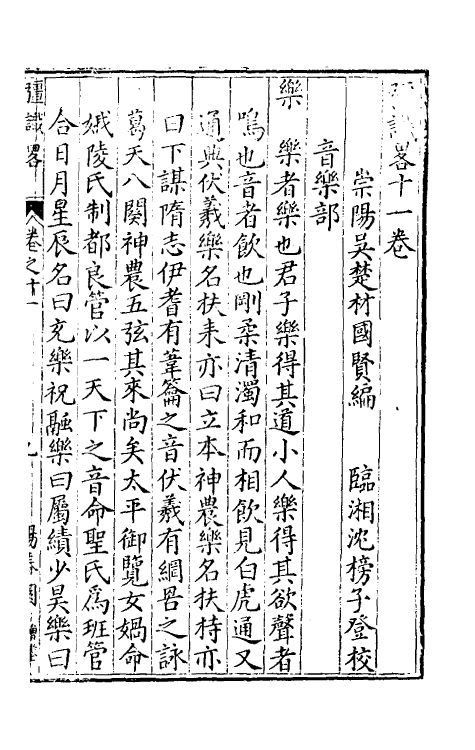 彊識畧十一卷
崇陽吳楚材國賢編 臨湘沈榜子登校
音樂部
樂 樂者樂也君子樂得其道小人樂得其欲聲者
鳴也音者飲也剛柔清濁和而相飲見白虎通又
通典伏羲樂名扶耒亦曰立本神農樂名扶持亦
曰下謀隋志伊耆有葦籥之音伏羲有網罟之詠
葛天八闋神農五弦其來尚矣太平御覽女媧命
娥陵氏制都良管以一天下之音命聖氏爲班管
合日月星辰名曰充樂祝融樂曰屬績少昊樂曰
彊識畧 卷之十一